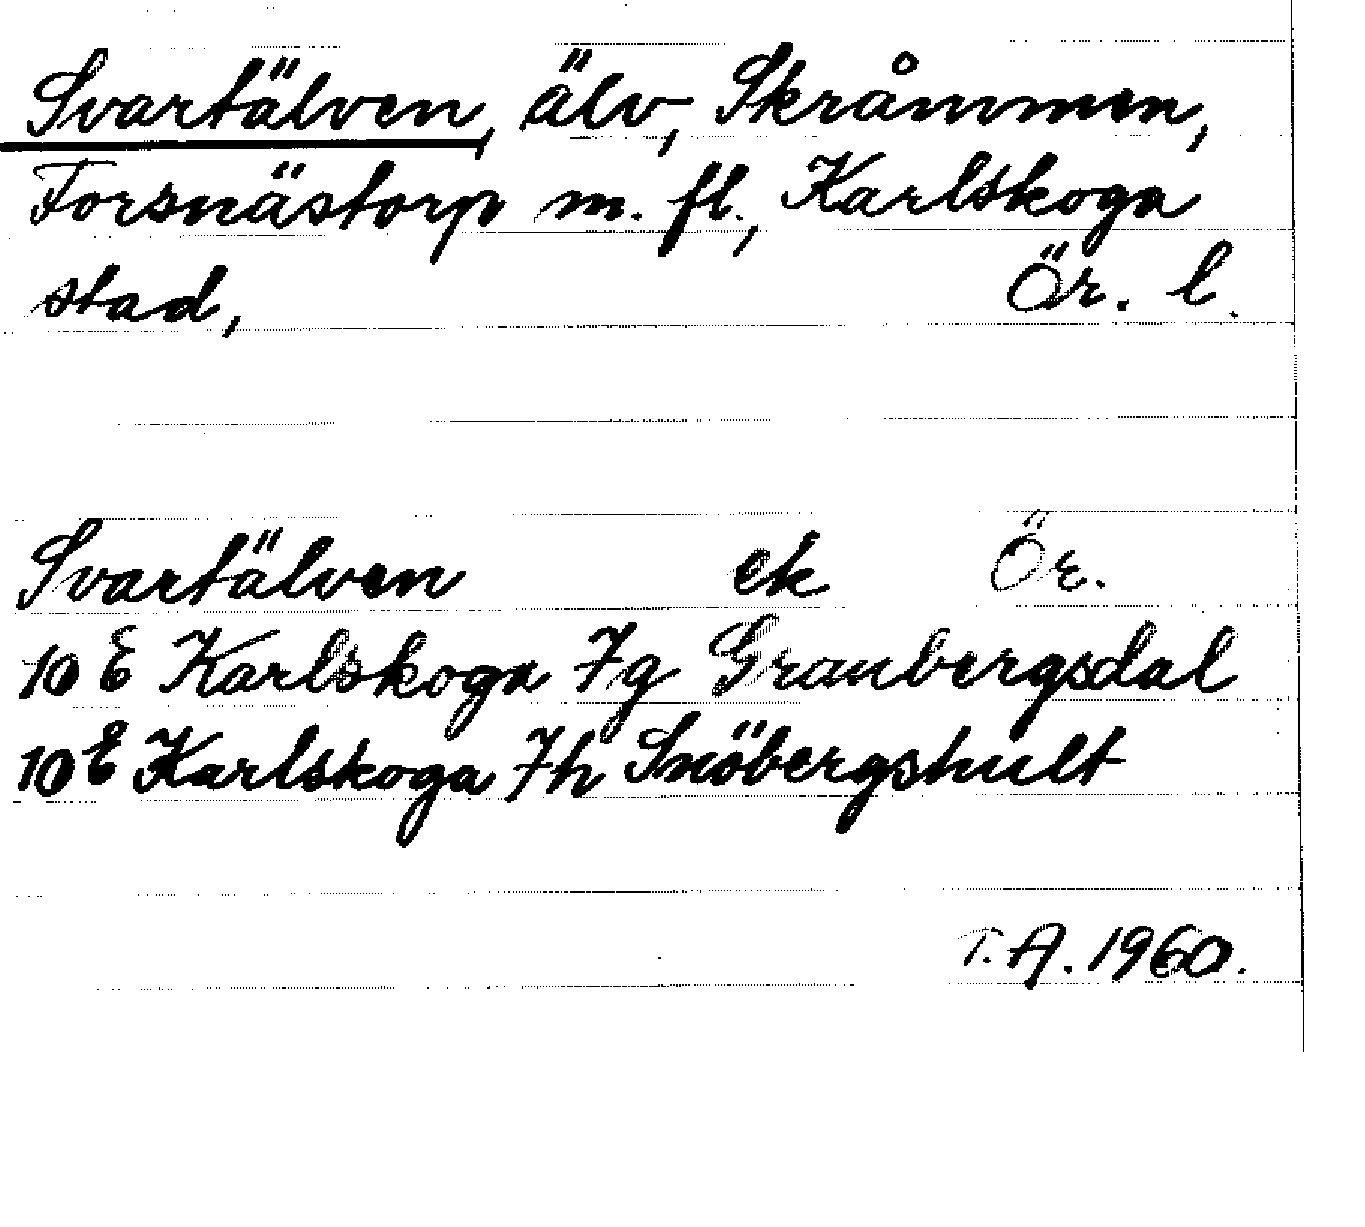 Svartälven, älv, Skråmmen,
Forsnästorp m. fl., Karlskoga
stad, Ör. l.
Svartälven ek Ör.
10 E Karlskoga 7g Granbergsdal
10 E Karlskoga 7h Snöbergshult
T. A. 1960.